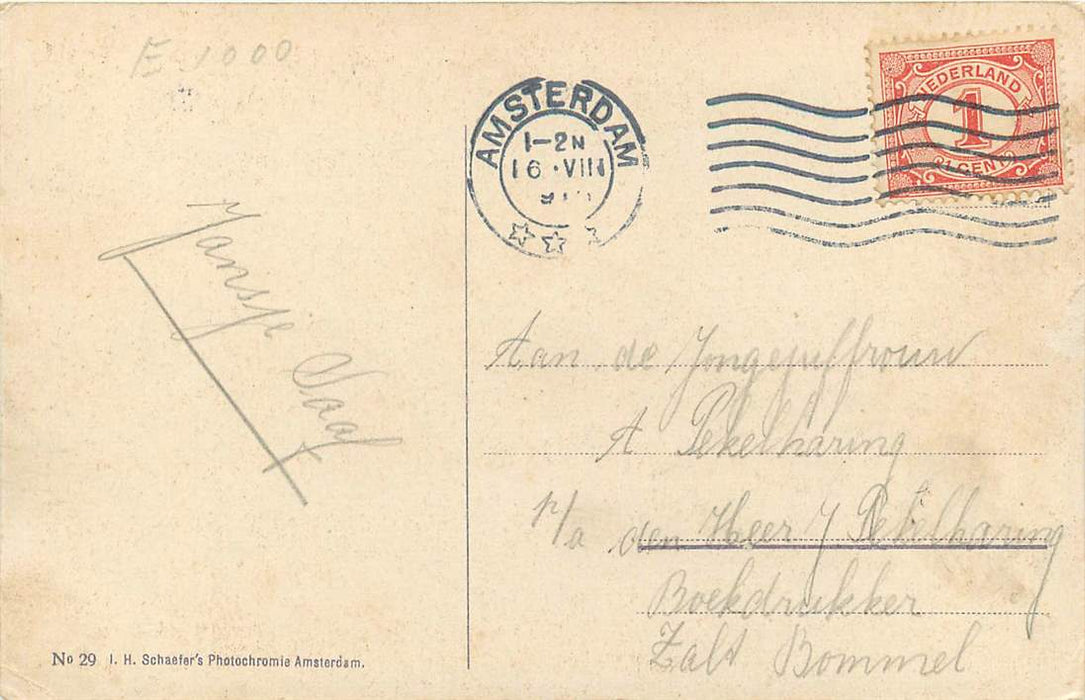 E 1000
AMSTERDAM
1-2N
16 · VIII
NEDERLAND
1
CENT
Jansje
Aan de Jongejuffrouw
A Pekelharing
p/a den Heer J Pekelharing
Boekdrukker
Zalt Bommel
No 29 I. H. Schaefer's Photochromie Amsterdam.